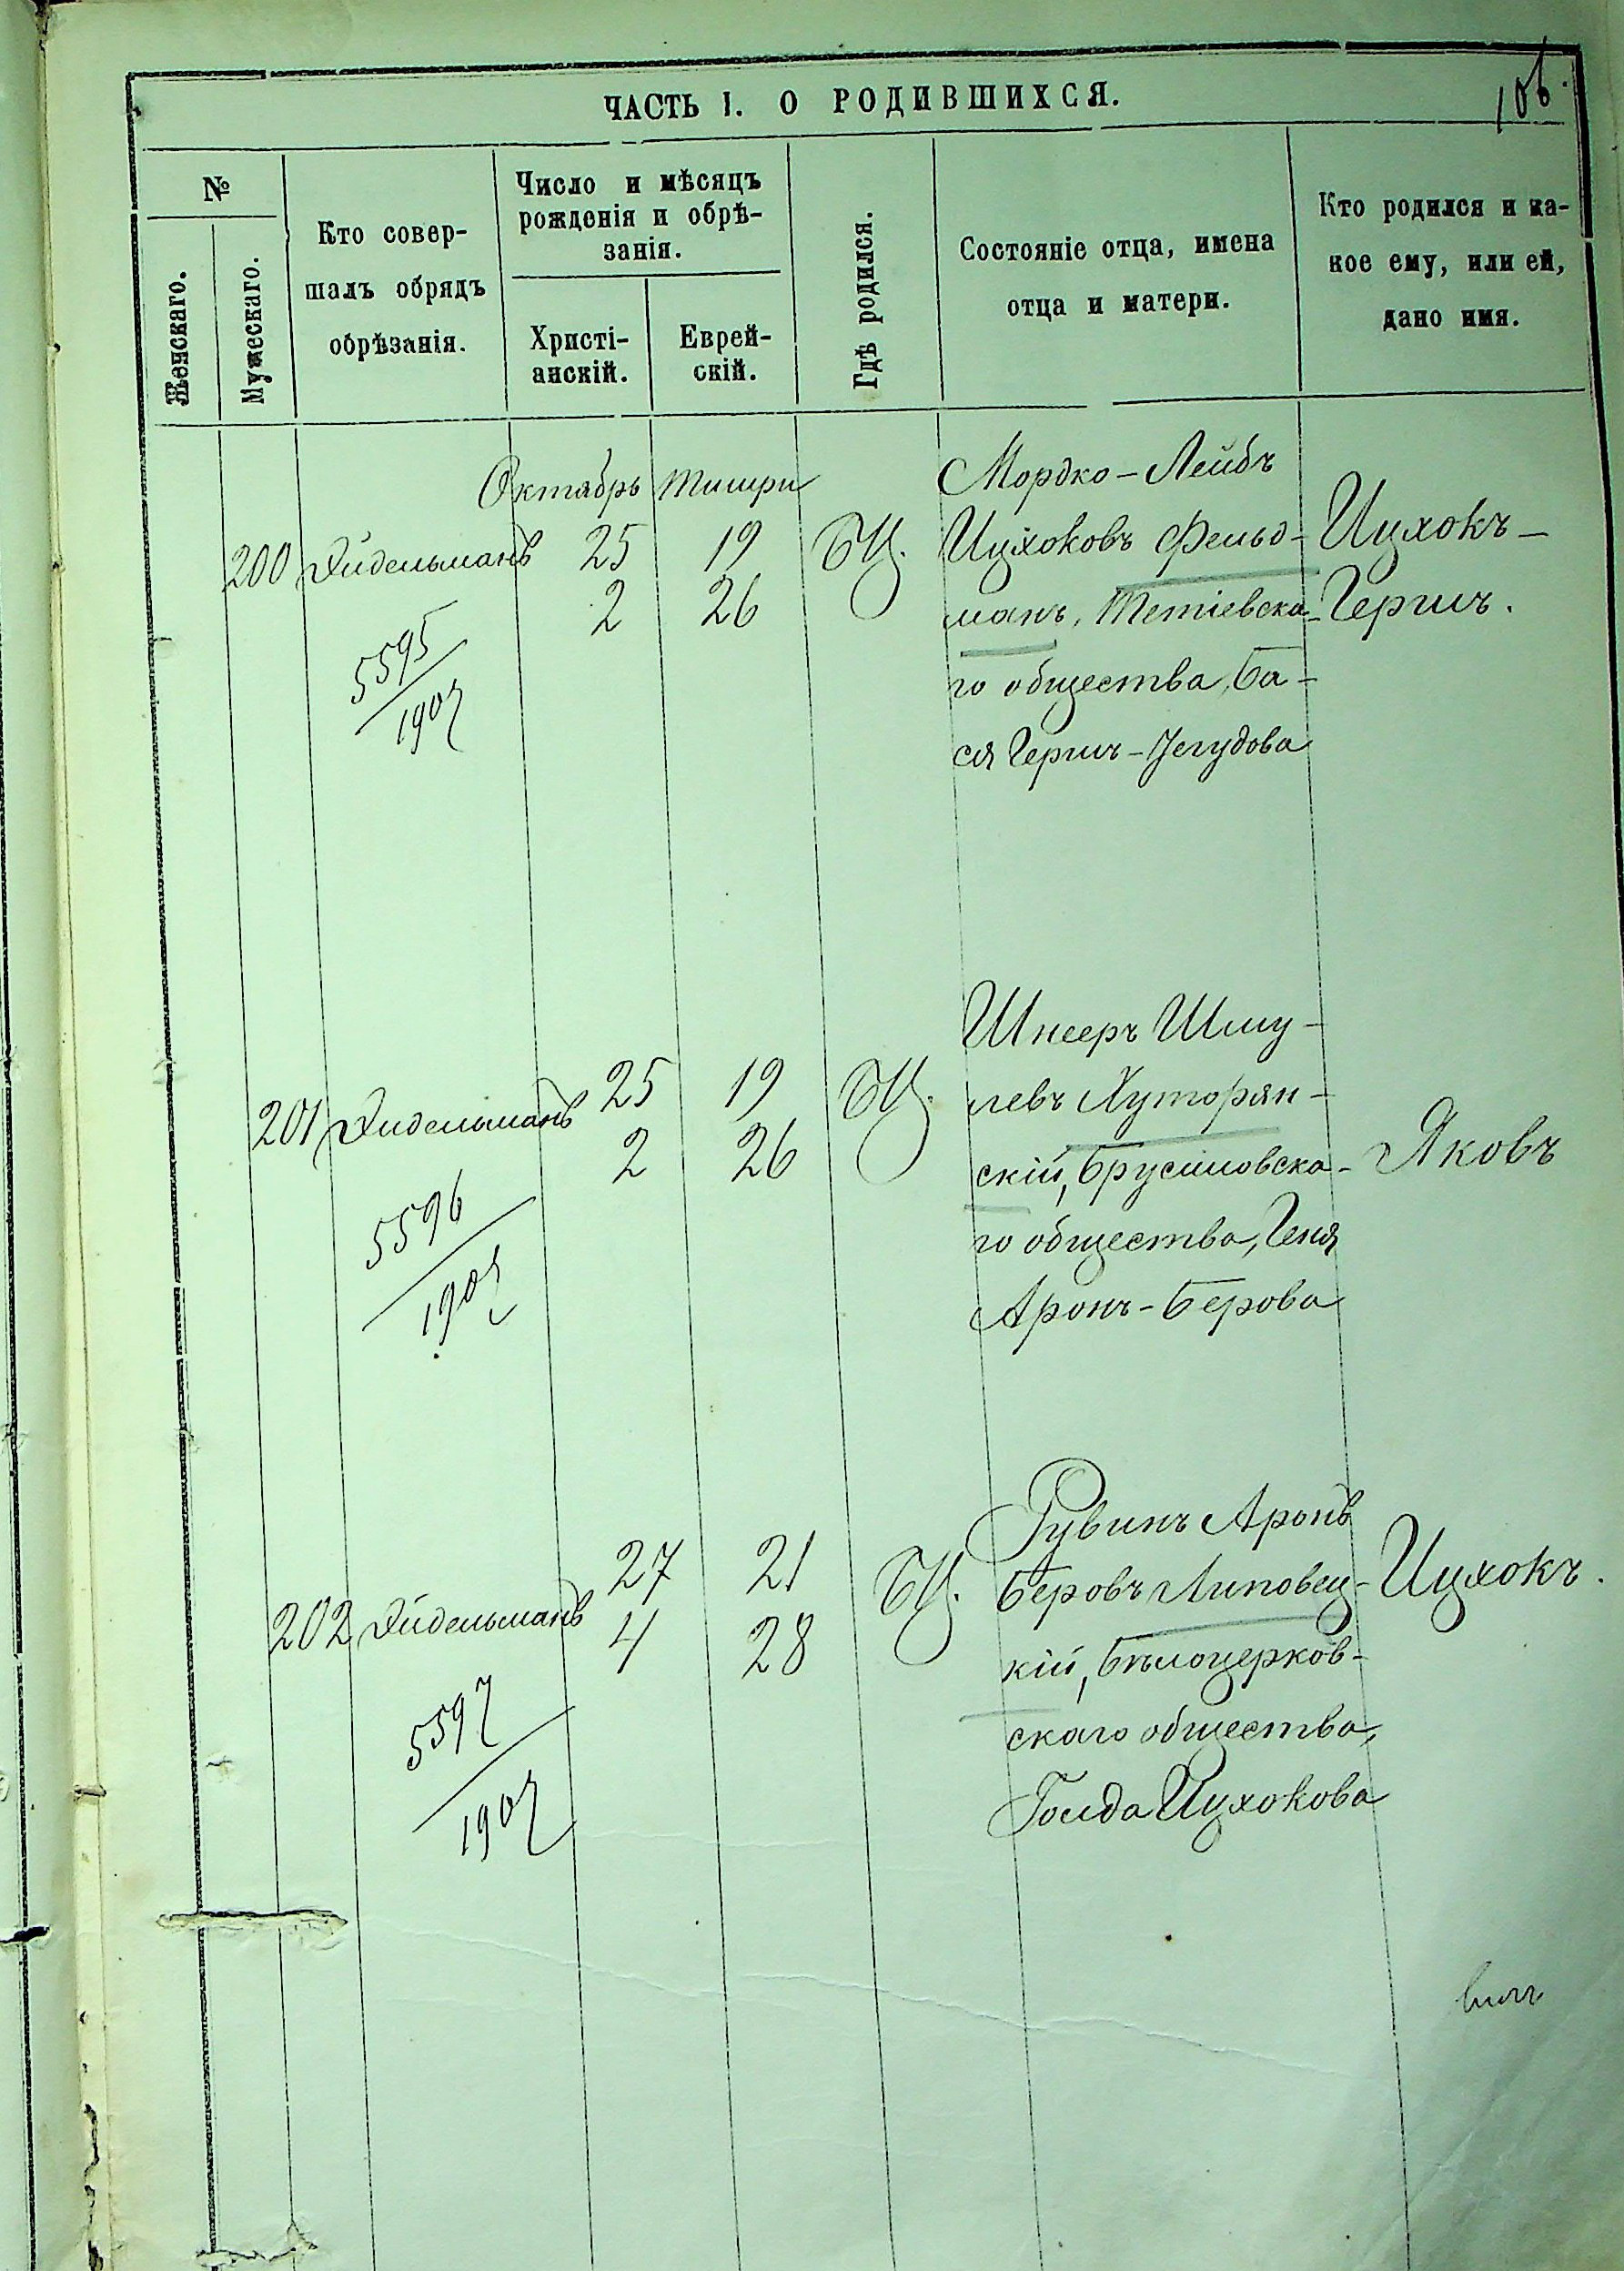 106.
ЧАСТЬ I. О РОДИВШИХСЯ.
№
Женскаго.
Мужескаго.
Кто совер-
шалъ обрядъ
обрѣзанія.
Число и мѣсяцъ
рожденія и обрѣ-
занія.
Христі-
анскій.
Еврей-
скій.
Гдѣ родился.
Состояніе отца, имена
отца и матери.
Кто родился и ка-
кое ему, или ей,
дано имя.
Октябрь Тишри
200 Эйдельманъ 25 19 БЦ.
2 26
5595
1907
Мордко-Лейбъ
Ицхоковъ Фельд-
манъ, Тетіевска-
го общества, Ба-
ся Герш-Іегудова
Ицхокъ-
Герш.
201 Эйдельманъ 25 19 БЦ.
2 26
5596
1907
Шнееръ Шму-
левъ Хуторян-
скій, Брусиловска-
го общества, Геня
Аронъ-Берова
Яковъ
202 Эйдельманъ 27 21 БЦ.
4 28
5597
1907
Рувинъ Аронъ
Беровъ Липовец-
кій, Бѣлоцерков-
скаго общества,
Голда Ицхокова
Ицхокъ.